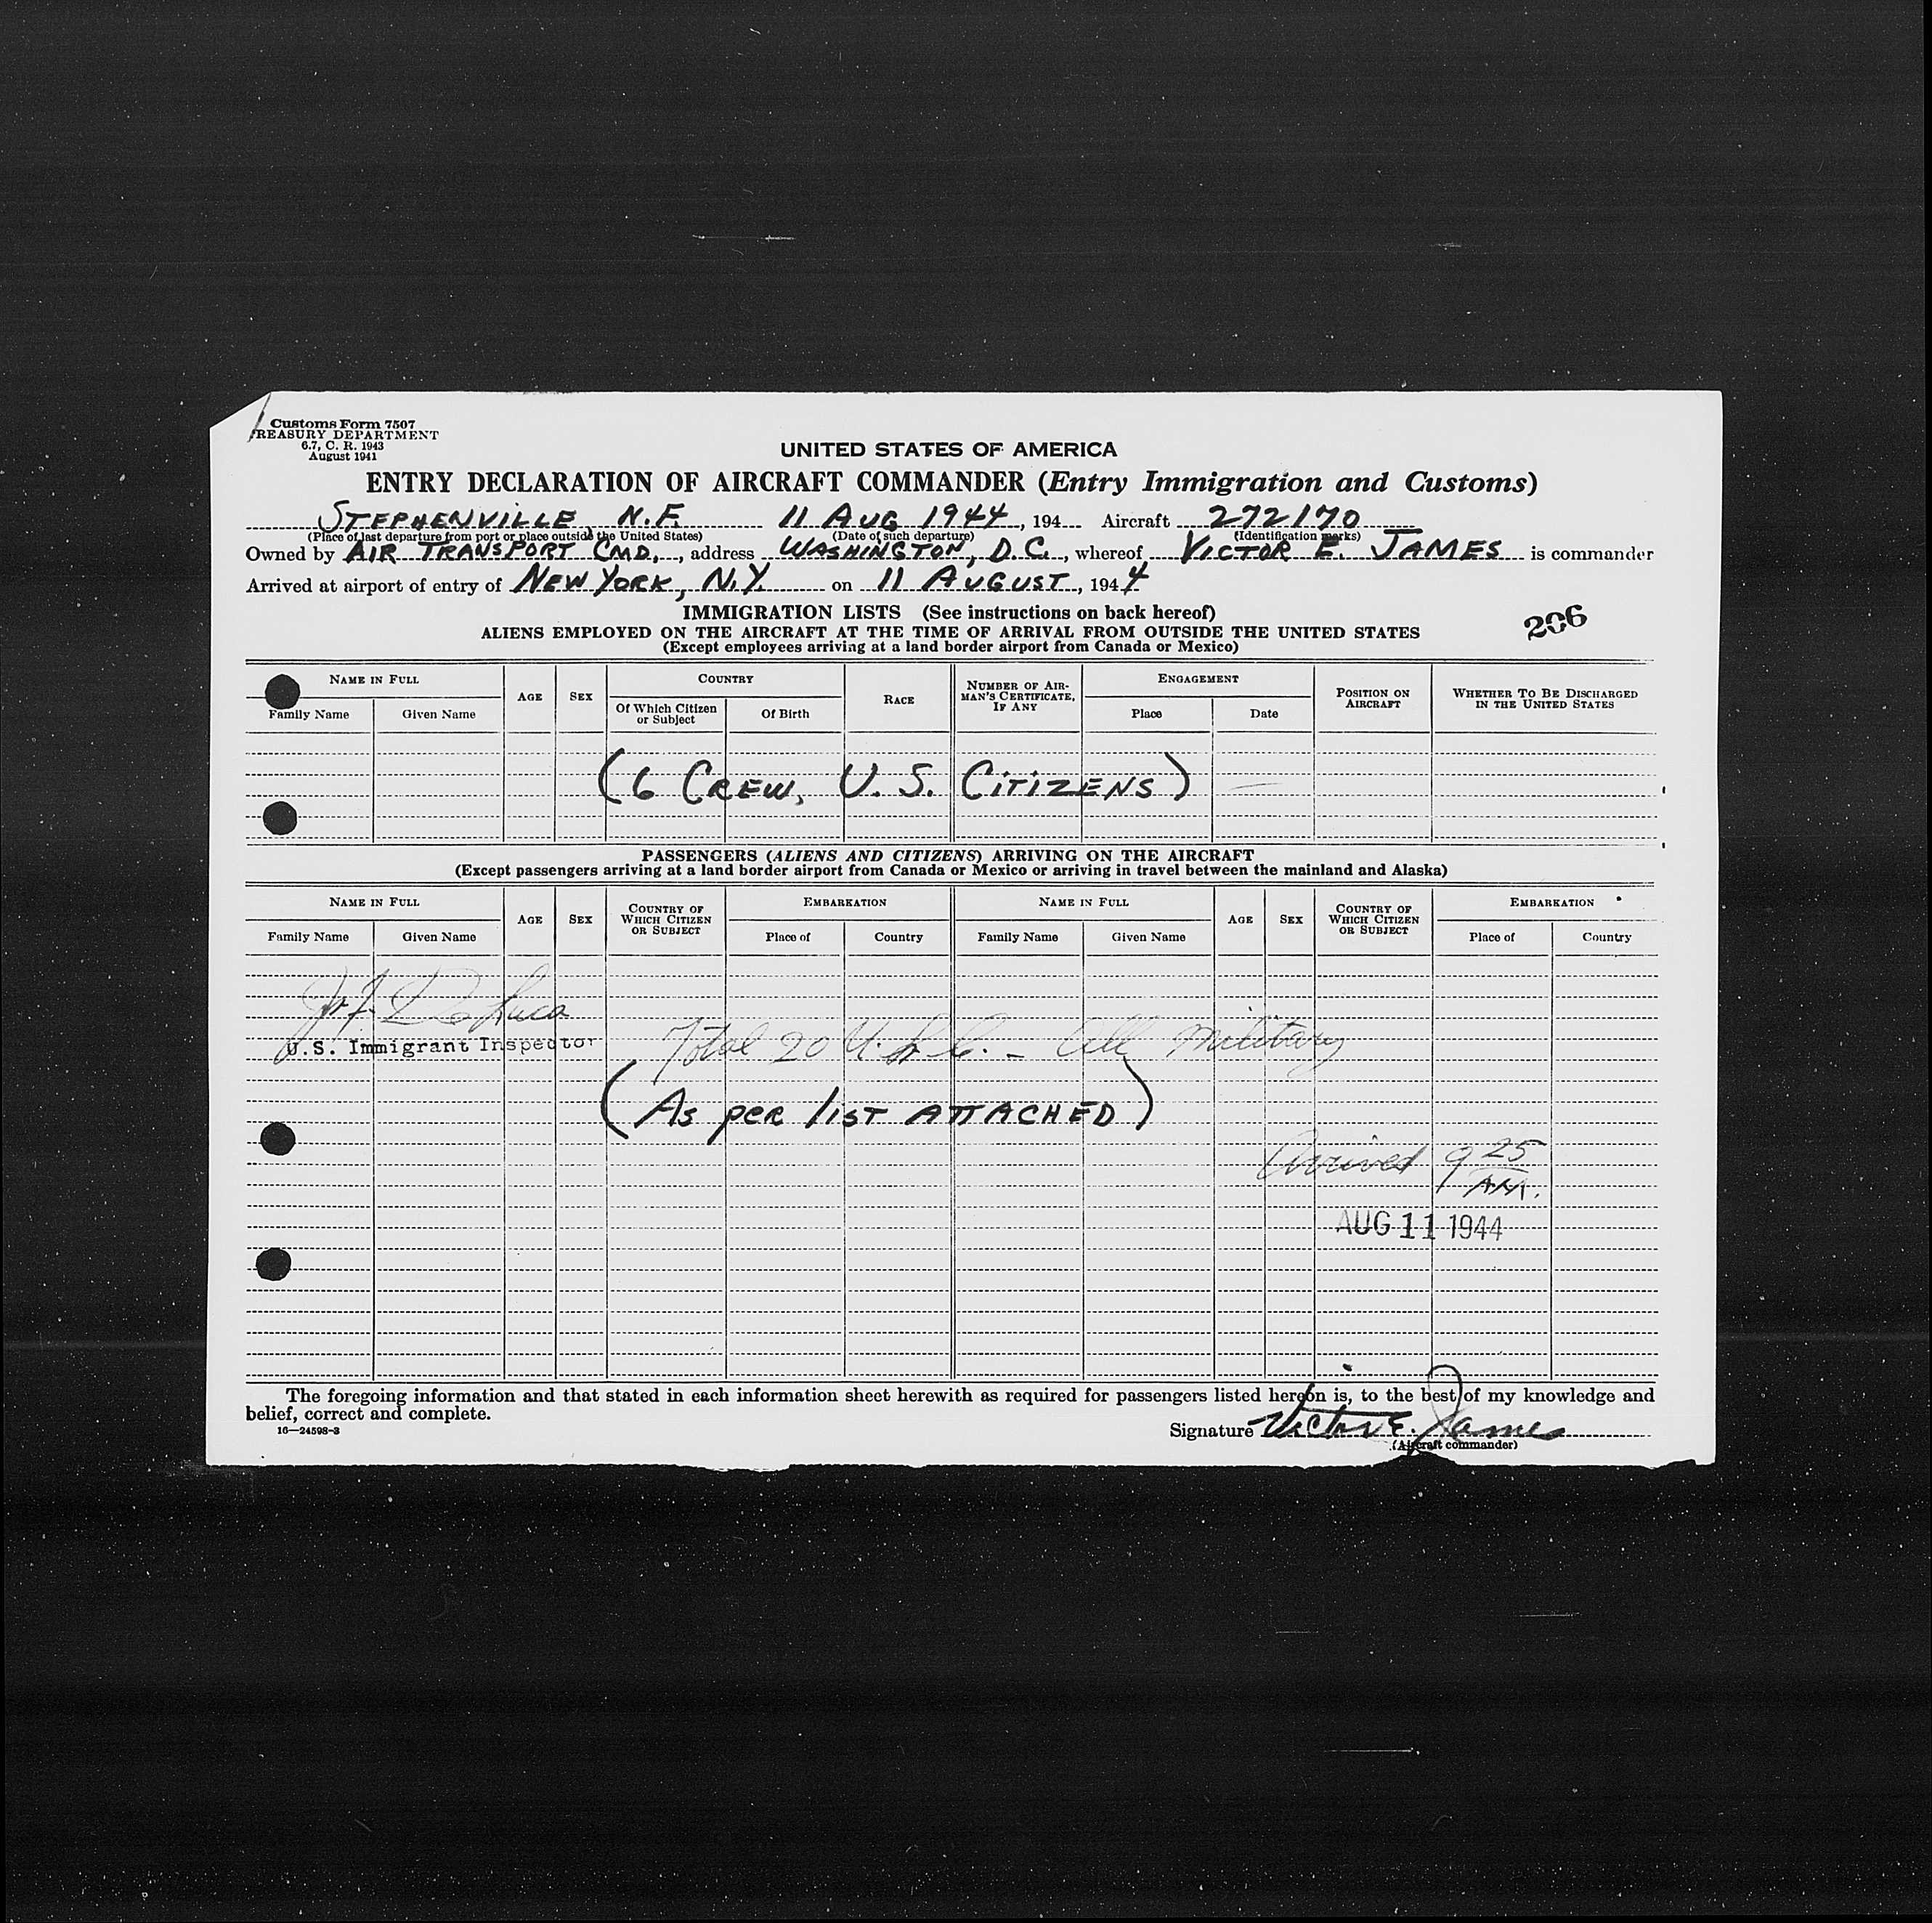 Customs Form 7507
TREASURY DEPARTMENT
6.7, C. R. 1943
August 1941
UNITED STATES OF AMERICA
ENTRY DECLARATION OF AIRCRAFT COMMANDER (Entry Immigration and Customs)
STEPHENVILLE, N.F. 11 AUG 1944, 194 Aircraft 272170
(Place of last departure from port or place outside the United States) (Date of such departure) (Identification marks)
Owned by AIR TRANSPORT CMD., address WASHINGTON, D.C., whereof VICTOR E. JAMES is commander
Arrived at airport of entry of NEW YORK, N.Y. on 11 AUGUST, 1944
IMMIGRATION LISTS (See instructions on back hereof)
206
ALIENS EMPLOYED ON THE AIRCRAFT AT THE TIME OF ARRIVAL FROM OUTSIDE THE UNITED STATES
(Except employees arriving at a land border airport from Canada or Mexico)
NAME IN FULL AGE SEX COUNTRY RACE NUMBER OF AIRMAN'S CERTIFICATE, IF ANY ENGAGEMENT POSITION ON AIRCRAFT WHETHER TO BE DISCHARGED IN THE UNITED STATES
Family Name Given Name Of Which Citizen or Subject Of Birth Place Date
(6 CREW, U.S. CITIZENS)
PASSENGERS (ALIENS AND CITIZENS) ARRIVING ON THE AIRCRAFT
(Except passengers arriving at a land border airport from Canada or Mexico or arriving in travel between the mainland and Alaska)
NAME IN FULL AGE SEX COUNTRY OF WHICH CITIZEN OR SUBJECT EMBARKATION NAME IN FULL AGE SEX COUNTRY OF WHICH CITIZEN OR SUBJECT EMBARKATION
Family Name Given Name Place of Country Family Name Given Name Place of Country
De Luca
U.S. Immigrant Inspector
Total 20 U.S.C. - All Military
(As per list ATTACHED)
Arrived 9 25 AM.
AUG 11 1944
The foregoing information and that stated in each information sheet herewith as required for passengers listed hereon is, to the best of my knowledge and
belief, correct and complete.
16—24598-3
Signature Victor E. James
(Aircraft commander)